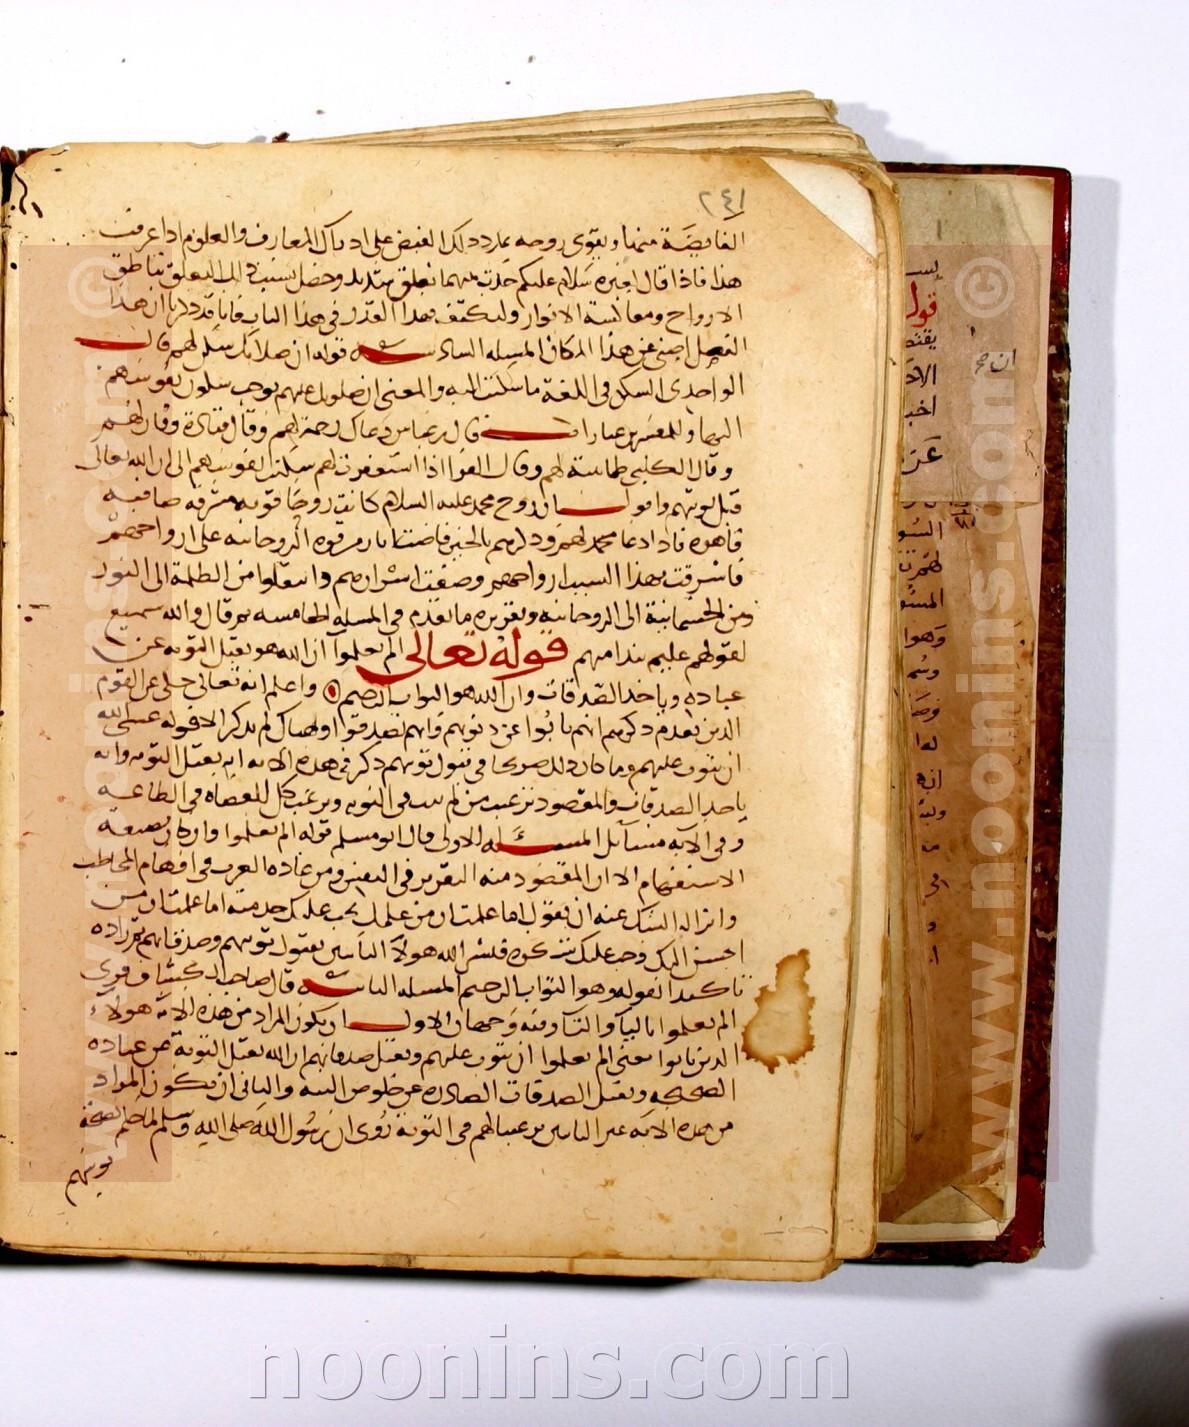 ٢٤١
الفايضة منها ويقوى روحه بمدد ذلك الفيض على ادراك المعارف والعلوم اذا عرفت
هذا فاذا قال لغيره سلام عليكم حدث بينهما تعلق شديد وحصل بسبب ذلك التعلق تطابق
الارواح ومعاكسة الانوار ولنكتف بهذا القدر في هذا الباب فانا قد ذكرنا ان هذا
الفصل اجنبي عن هذا المكان المسيله السادسه قوله ان صلاتك سكن لهم قال
الواحدي السكن في اللغة ما سكنت اليه والمعنى ان صلواتك عليهم توجب سكون نفوسهم
اليها وللمفسرين عبارات قال بن عباس دعاك رحمة لهم وقال قتادة وقار لهم
وقال الكلبي طمانينة لهم وقال الفرا اذا استغفرت لهم سكنت نفوسهم الى ان الله تعالى
قبل توبتهم واقول ان روح محمد عليه السلام كانت روحا قوية مشرقة صافية
قاهره فاذا دعا محمد لهم وذكرهم بالخير فاضت اثار من قوة الروحانيه على ارواحهم
فاشرقت بهذا السبب ارواحهم وصفت اسرارهم وانتقلوا من الظلمة الى النور
ومن الجسمانية الى الروحانيه وتقريره ما تقدم في المسله الخامسه ثم قال والله سميع
لقولهم عليم بندامتهم قوله تعالى الم يعلموا ان الله هو يقبل التوبه عن
عباده وياخذ الصدقات وان الله هو التواب الرحيم واعلم انه تعالى حكى عن القوم
الذين تقدم ذكرهم انهم تابوا عن ذنوبهم وانهم تصدقوا وهناك لم يذكر الا قوله عسى الله
ان يتوب عليهم وما كان ذلك صريحا في قبول توبتهم ذكر في هذه الايه انه يقبل التوبه وانه
ياخذ الصدقات والمقصود ترغيب من لم يتب في التوبه وترغيب كل العصاه في الطاعه
وفي الآيه مسايل المسئله الاولى قال ابو مسلم قوله الم يعلموا وان كان بصيغة
الاستفهام الا ان المقصود منه التقرير في النفس ومن عادة العرب في افهام المخاطب
وازاله الشك عنه ان يقول اما علمت ان من علمك يجب عليك خدمته اما علمت ان من
احسن اليك وجب عليك شكره فبشر الله هولآ التابين بقبول توبتهم وصدقاتهم ثم زاده
تاكيدا بقوله وهو التواب الرحيم المسله الثانيه قال صاحب الكشاف قرى
الم يعلموا باليآ والتآ وفيه وجهان الاول ان يكون المراد من هذه الاية هولآء
الذين تابوا معنى الم يعلموا ان يتوب عليهم وتقبل صدقاتهم ان الله يقبل التوبة عن عباده
الصحيحه ويقبل الصدقات الصادره عن خلوص النيه والثاني ان يكون المراد
من هذه الايه غير التابين ترغيبا لهم في التوبة روى ان رسول الله صلى الله وسلم لما حكم بصحة
توبتهم
noonins.com
© www.noonins.com